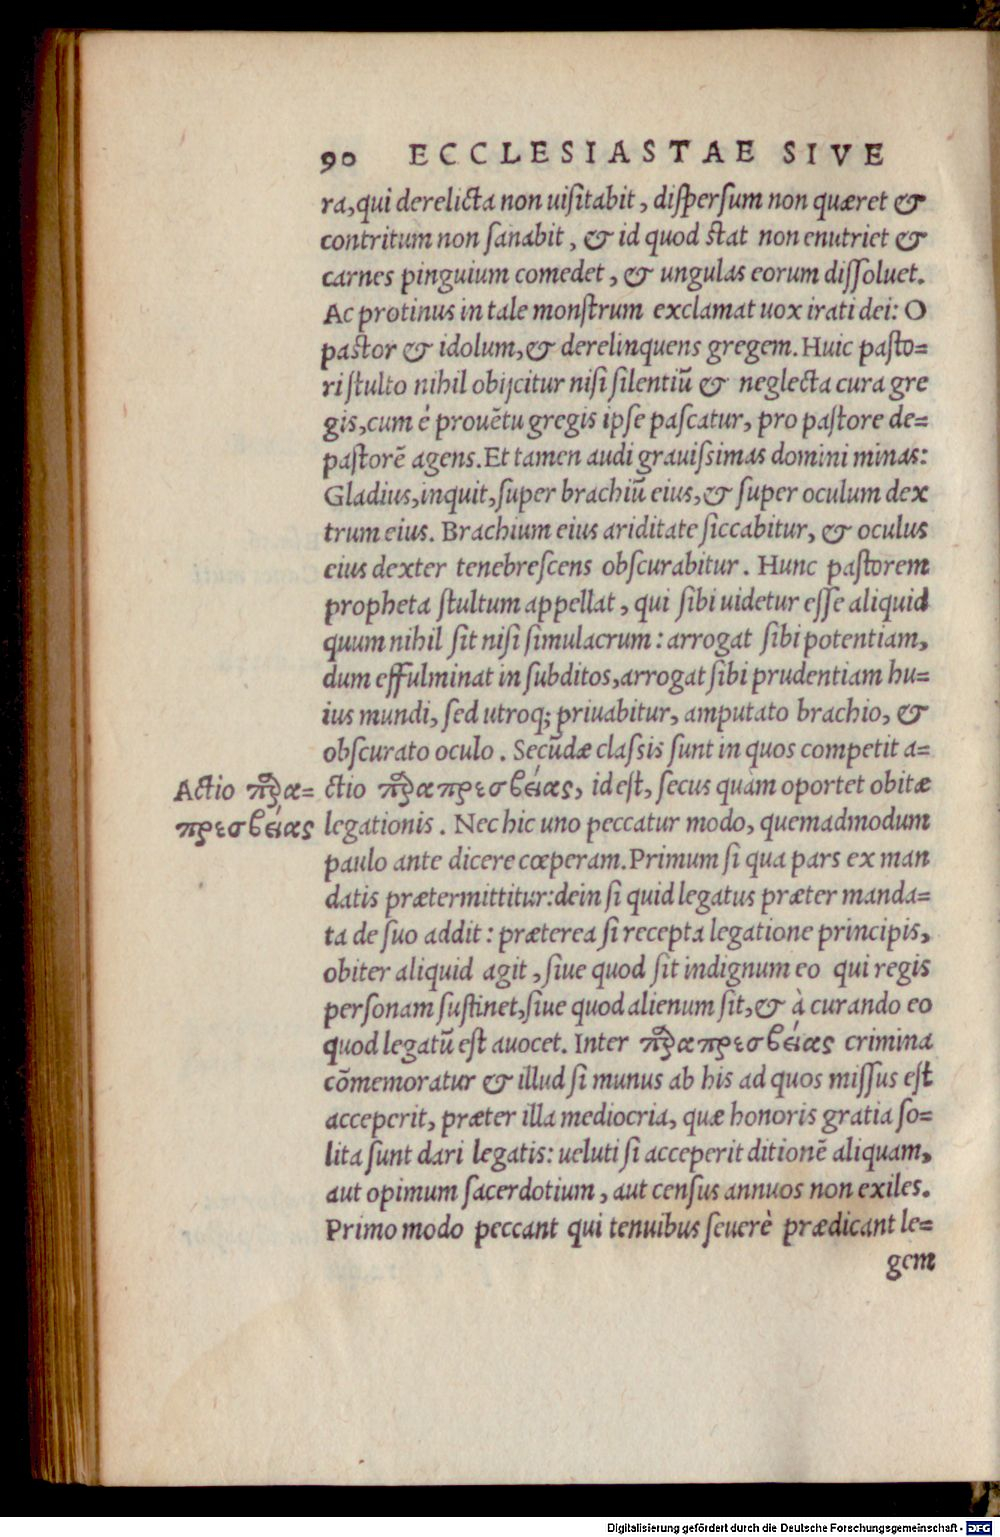 90 ECCLESIASTAE SIVE
ra, qui derelicta non uisitabit, dispersum non quæret &
contritum non sanabit, & id quod stat non enutriet &
carnes pinguium comedet, & ungulas eorum dissoluet.
Ac protinus in tale monstrum exclamat uox irati dei: O
pastor & idolum, & derelinquens gregem. Huic pasto=
ri stulto nihil obijcitur nisi silentiū & neglecta cura gre
gis, cum é prouētu gregis ipse pascatur, pro pastore de=
pastorē agens. Et tamen audi grauissimas domini minas:
Gladius, inquit, super brachiū eius, & super oculum dex
trum eius. Brachium eius ariditate siccabitur, & oculus
eius dexter tenebrescens obscurabitur. Hunc pastorem
propheta stultum appellat, qui sibi uidetur esse aliquid
quum nihil sit nisi simulacrum: arrogat sibi potentiam,
dum effulminat in subditos, arrogat sibi prudentiam hu=
ius mundi, sed utroq; priuabitur, amputato brachio, &
obscurato oculo. Secūdæ classis sunt in quos competit a=
Actio παρα=
πρεσβείας
ctio παραπρεσβείας, id est, secus quàm oportet obitæ
legationis. Nec hic uno peccatur modo, quemadmodum
paulo ante dicere cœperam. Primum si qua pars ex man
datis prætermittitur: dein si quid legatus præter manda=
ta de suo addit: præterea si recepta legatione principis,
obiter aliquid agit, siue quod sit indignum eo qui regis
personam sustinet, siue quod alienum sit, & à curando eo
quod legatū est auocet. Inter παραπρεσβείας crimina
cōmemoratur & illud si munus ab his ad quos missus est
acceperit, præter illa mediocria, quæ honoris gratia so=
lita sunt dari legatis: ueluti si acceperit ditionē aliquam,
aut opimum sacerdotium, aut census annuos non exiles.
Primo modo peccant qui tenuibus seuerè prædicant le=
gem
Digitalisierung gefördert durch die Deutsche Forschungsgemeinschaft - DFG